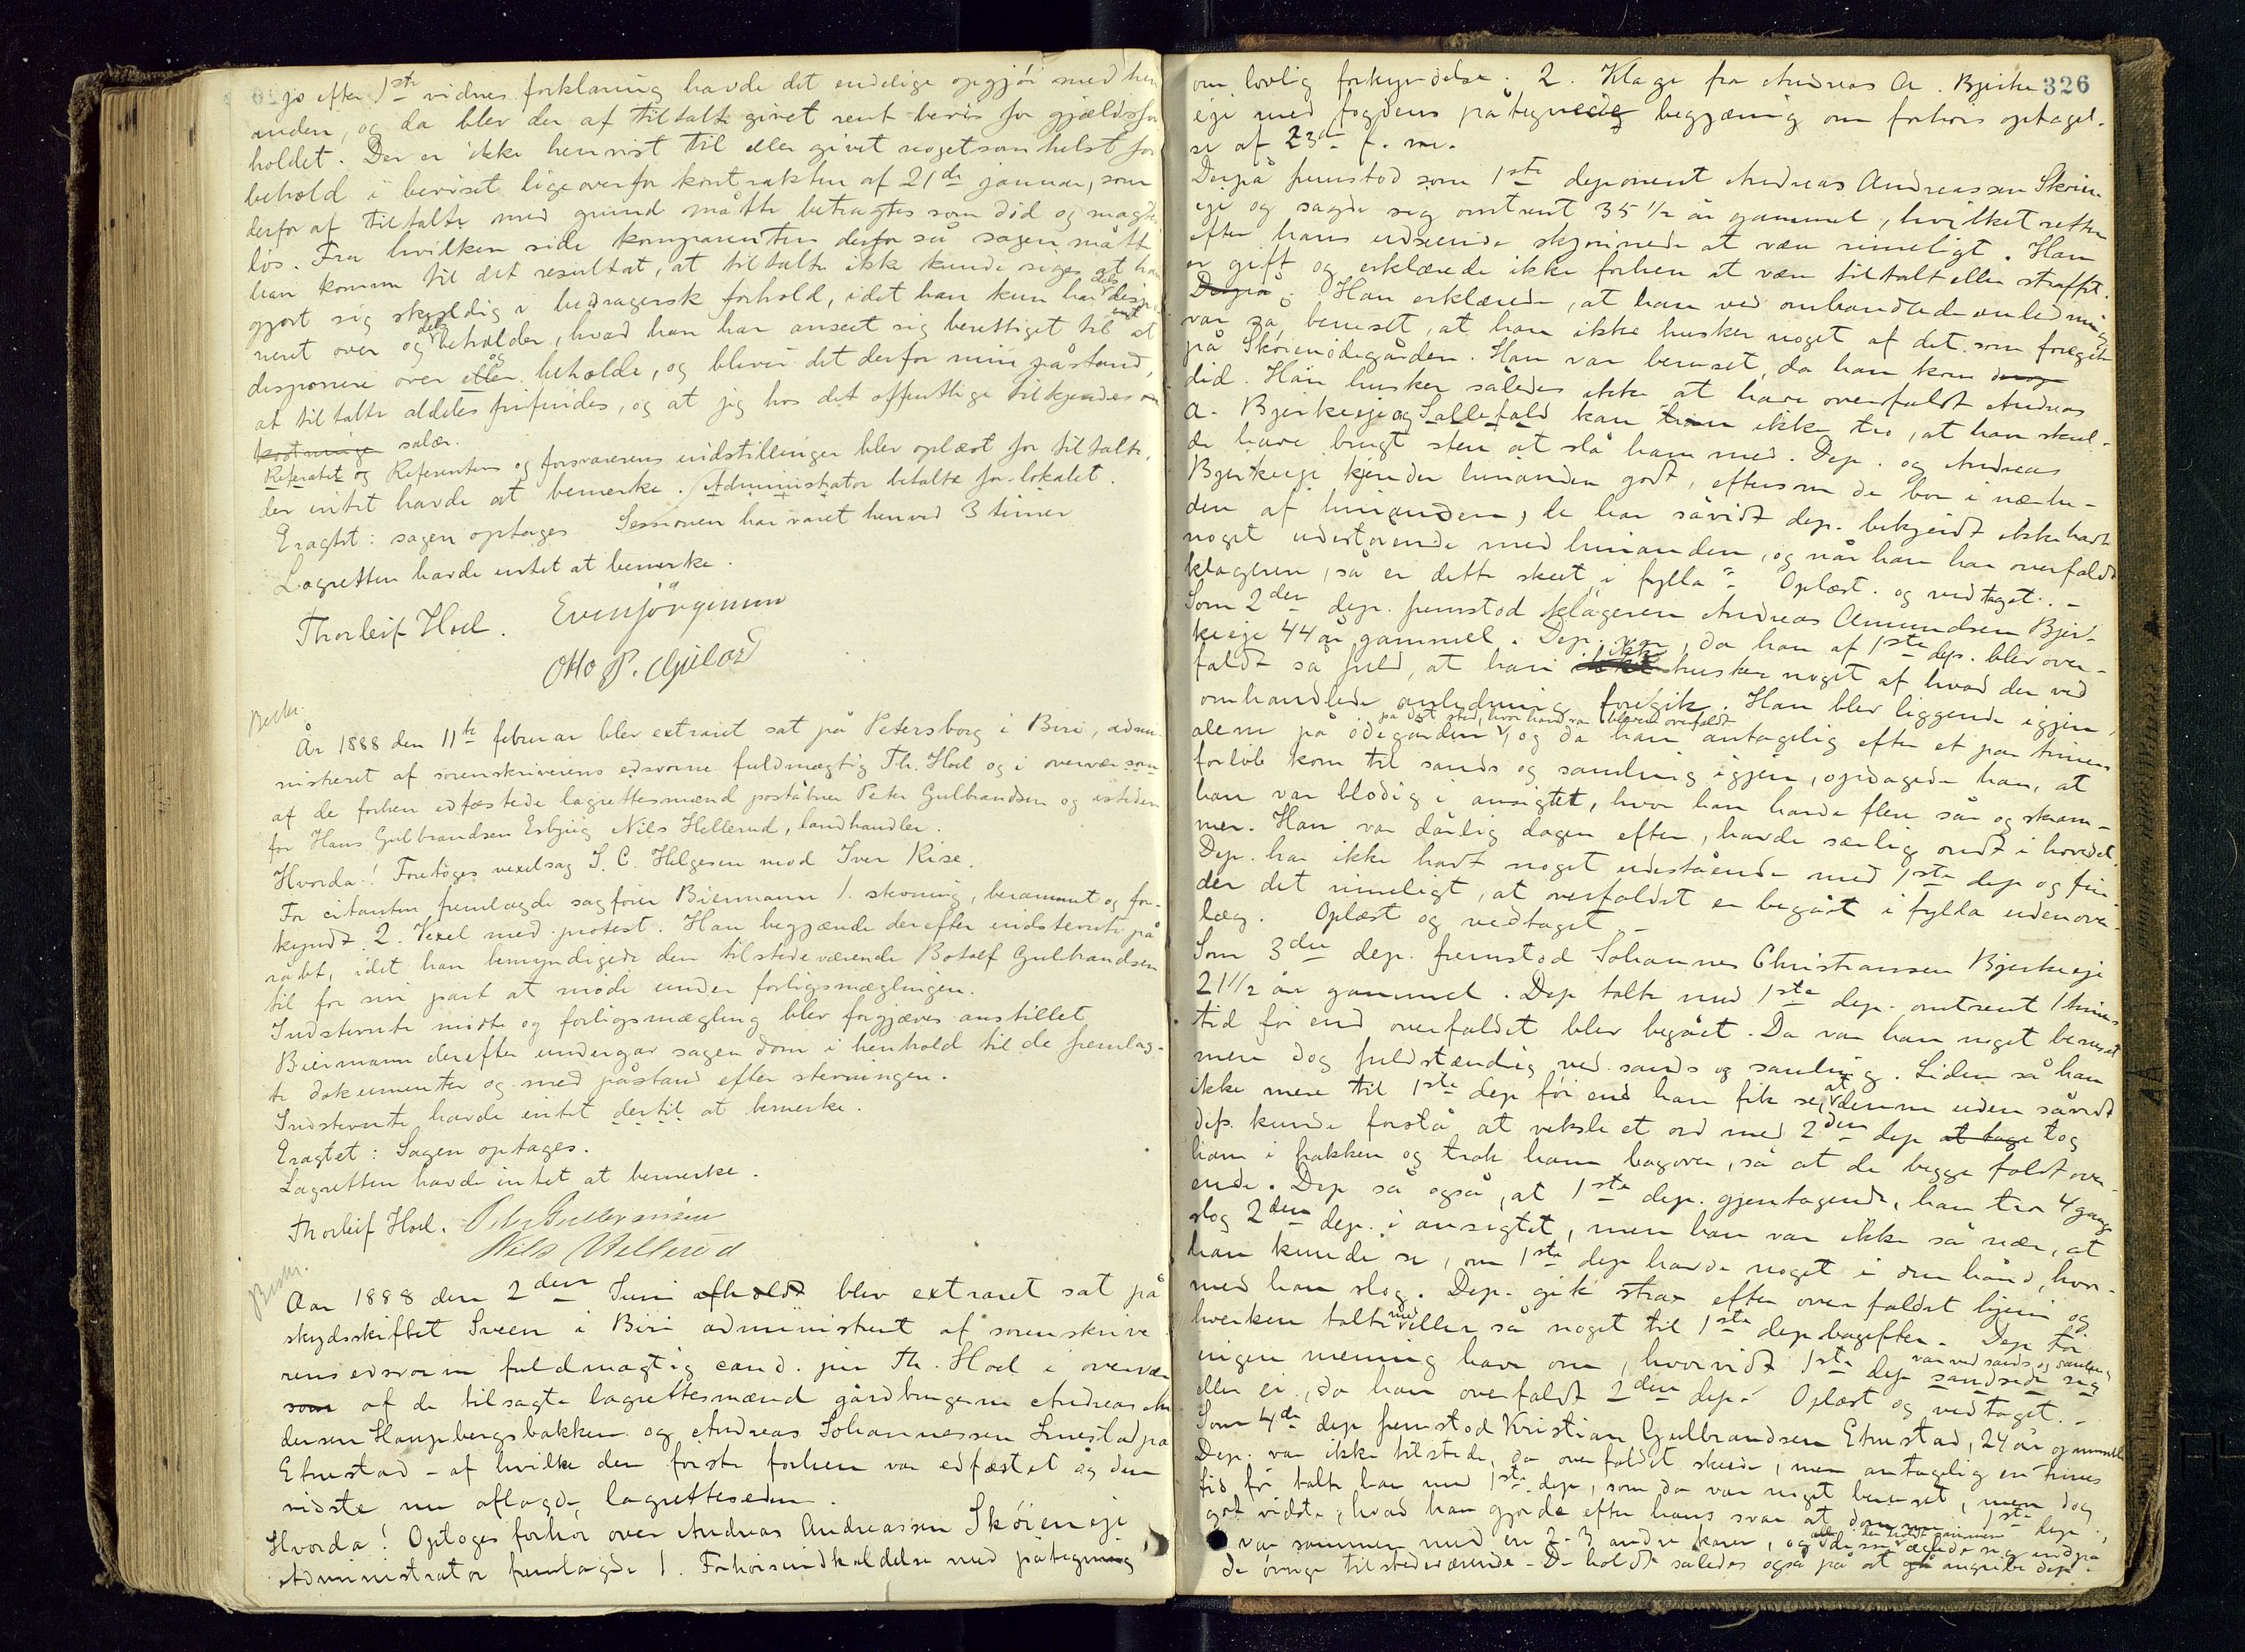 jo efter 1ste vidnes forklaring havde det endelige opgjör med hin
anden, og da blev der af tiltalte givet rent bevis for gjældsfor
holdet. Der er ikke henvist til eller givet nogetsomhelst for
behold i beviset ligeoverfor kontrakten af 21de januar, som
derfor af tiltalte med grund måtte betragtes som död og magtes
lös. Fra hvilken side komparenten derfor så sagen måtte
han komme til det resultat, at tiltalte ikke kunde siges at have
gjort sig skyldig i bedragersk forhold, idet han kun har dels dispo
neret over og dels beholdt, hvad han har anseet sig berettiget til at
disponere over eller og beholde, og bliver det derfor min påstand,
at tiltalte aldeles frifindes, og at jeg hos det offentlige tilkjendes
kostninge salær.
Referatet og Referenten og forsvarerens indstillinger blev oplæst for tiltalte,
der intet havde at bemerke. Administrator betalte for lokalet.
Eragtet: sagen optages Sessionen har varet henved 3 timer
Lagretten havde intet at bemerke.
Thorleif Hoel. Even Jörgensen
Otto P.
Beskr.
År 1888 den 11te februar blev extraret sat på Petersborg i Biri, admi
nistreret af sorenskriverens edsvorne fuldmægtig Th. Hoel og i overvær som
af de forhen edfæstede lagrettesmænd poståbner Peter Gulbrandsen og isteden
for Hans Gulbrandsen Esbjug Nils Hellerud, landhandler.
Hvorda! Foretoges vexelsag S. C. Helgesen mod Iver Rise.
For citanten fremlagde sagförer Biermann 1. stevning, berammet og for-
kyndt 2. Vexel med protest. Han begjærede derefter indstevnte på
råbt, idet han bemyndigede den tilstedeværende Botolf Gulbrandsen
til for sin part at möde under forligsmæglingen.
Indstevnte mödte og forligsmægling blev forgjæves anstillet
Biermann derefter undergav sagen dom i henhold til de fremlag-
te dokumenter og med påstand efter stevningen.
Indstevnte havde intet dertil at bemerke.
Eragtet: Sagen optages.
Lagretten havde intet at bemerke.
Thorleif Hoel. Peter Gulbrandsen
Nils Hellerud
Beskr.
Aar 1888 den 2den Juni afholdt blev extraret sat på
skydsskiftet Sveen i Biri administreret af sorenskrive
rens edsvorne fuldmægtig cand. jur Th. Hoel i overvær
som af de tilsagte lagrettesmænd gårdbrugerne Andreas An
dersen Haugsbergsbakken og Andreas Johannessen på
Ehustad - af hvilke den förste forhen var edfæstet og den
sidste nu aflagde lagretteseden.
Hvorda! Optoges forhör over Andreas Andreassen Sköieneje
Administrator fremlagde 1. Forhörsindkaldelse med påtegning
326
om lovlig forkyndelse. 2. Klage fra Andreas A. Bjerke
eje med fogdens påtegnede begjæring om forhörs optagel-
se af 23de f. m.
Derpå fremstod som 1ste deponent Andreas Andreassen Sköien
eje og sagde sig omtrent 35 1/2 år gammel, hvilket retten
efter hans udseende skjönnede at være rimeligt. Han
er gift og erklærede ikke forhen at være tiltalt eller straffet.
Derpå. Han erklærede, at han ved omhandlede anledning
var så beruset, at han ikke husker noget af det som foregik
på Sköienödegården. Han var beruset, da han kom
did. Han husker således ikke at have overfaldt Andreas
A. Bjerkeeje og Ialfefald kan han ikke tro, at han skul-
de have brugt sten at slå ham med. Dep. og Andreas
Bjerkeeje kjender hinanden godt, eftersom de bor i nærhe-
den af hinanden, de har såvidt dep. bekjendt ikke havt
noget udestående med hinanden, og når han har overfaldt
klageren, så er dette skeet „i fylla“. Oplæst og vedtaget. -
Som 2den dep. fremstod klageren Andreas Amundsen Bjer-
keeje 44 år gammel. Dep. var, da han af 1ste dep. blev over-
faldt så fuld, at han ikke husker noget af hvad der ved
omhandlede anledning foregik. Han blev liggende igjen
alene på ödegården på det sted, hvor han var bleven overfaldt, og da han antagelig efter et par timers
forlöb kom til sands og samling igjen, opdagede han, at
han var blodig i ansigtet, hvor han havde flere sår og skram-
mer. Han var dårlig dagen efter, havde særlig ondt i hovedet.
Dep. har ikke havt noget udestående med 1ste dep og fin-
der det rimeligt, at overfaldet er begået i fylla uden over-
læg. Oplæst og vedtaget -
Som 3die dep. fremstod Johannes Christiansen Bjerkeeje
21 1/2 år gammel. Dep talte med 1ste dep. omtrent 1 times
tid för end overfaldet blev begået. Da var han noget beruset
men dog fuldstændig ved sands og samling. Siden så han
ikke mere til 1ste dep för end han fik se, at denne uden såvidt
dep. kunde forstå at veksle et ord med 2den dep at tage tog
ham i nakken og trak ham bagover, så at de begge faldt over
ende. Dep så også, at 1ste dep. gjentagende, han tror 4 gange
slog 2den dep. i ansigtet, men han var ikke så nær, at
han kunde se, om 1ste dep havde noget i den hånd, hvor-
med han slog. Dep. gik strax efter overfaldet hjem og
hverken talte med eller så noget til 1ste dep bagefter. Dep tör
ingen mening have om, hvorvidt 1ste dep sandsede sig var ved sands og samling
eller ei, da han overfaldt 2den dep. Oplæst og vedtaget. -
Som 4de dep fremstod Kristian Gulbrandsen Ehustad, 24 år gammel
Dep. var ikke tilstede, da overfaldet skede, men antagelig en times
tid för talte han med 1ste dep, som da var noget beruset, men dog
got vidste, hvad han gjorde efter hans svar at dömme. 1ste dep.
var sammen med en 2-3 andre karer, og alle disse, der holdt sammen, eglede sig ind på
de övrige tilstedeværende - De holdt således også på at gå angribe dep.